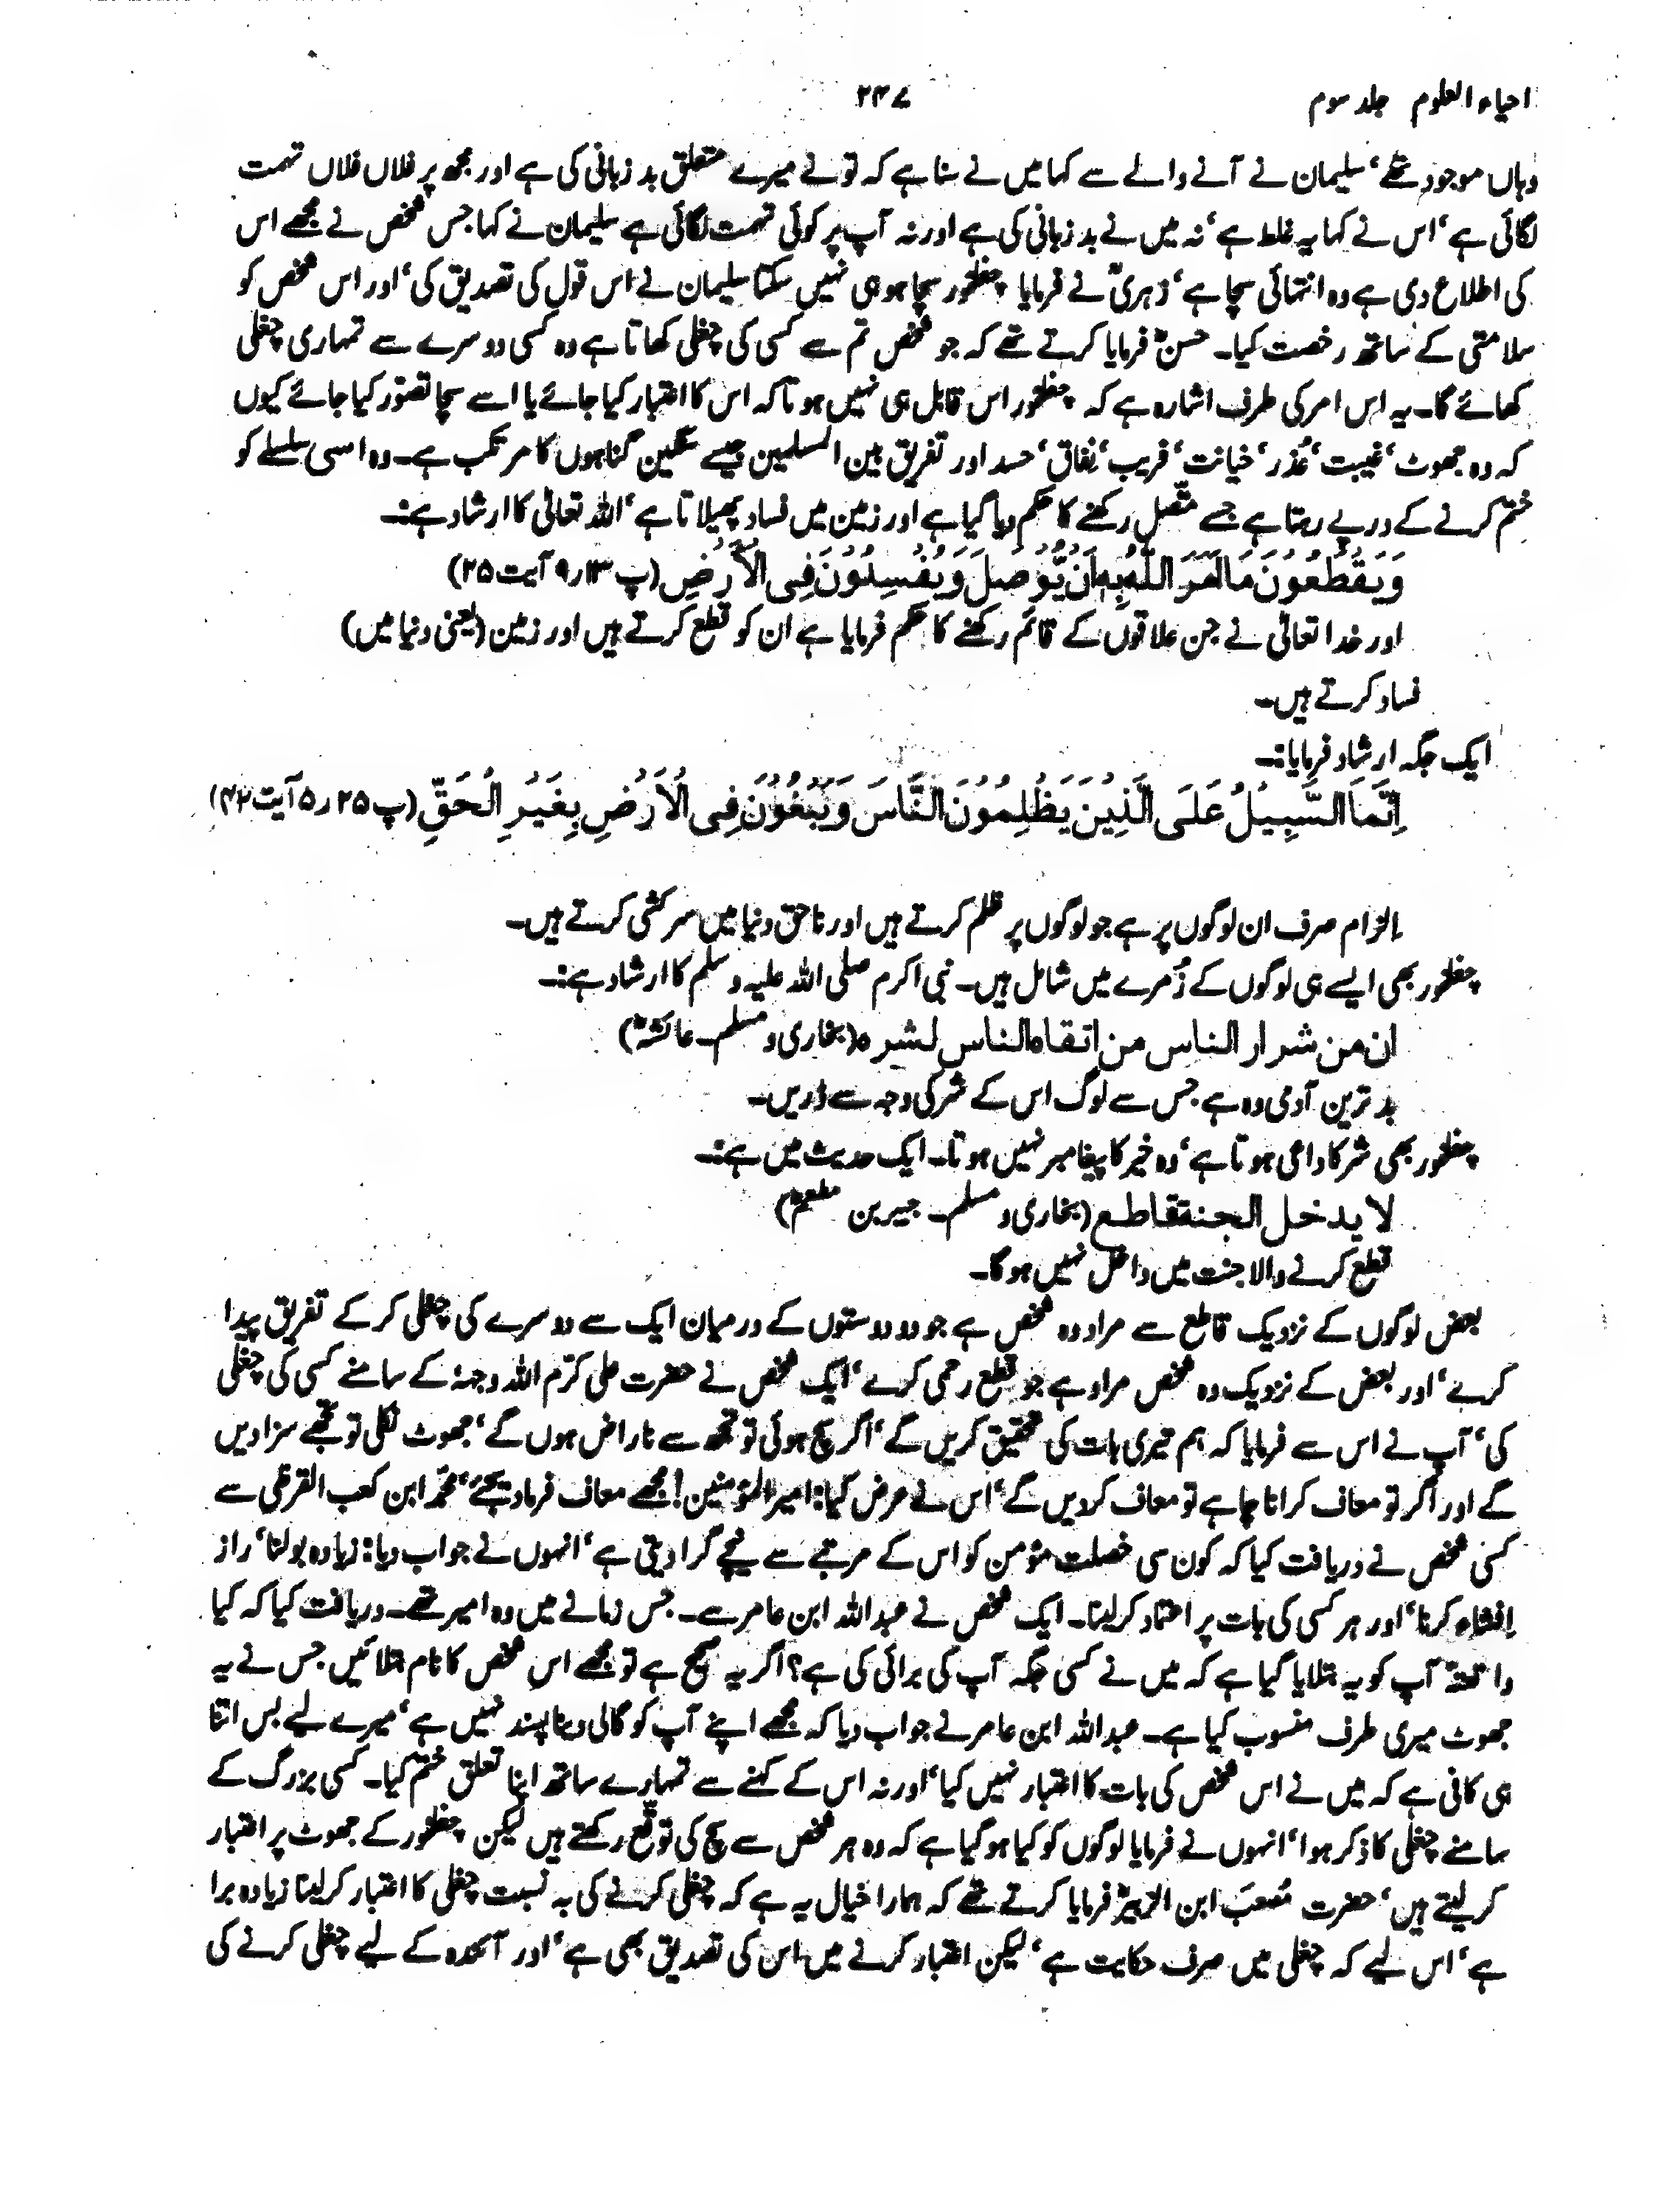 احیاء العلوم جلد سوم ۲۴۷
وہاں موجود تھے‘ سلیمان نے آنے والے سے کہا میں نے سنا ہے کہ تو نے میرے متعلق بد زبانی کی ہے اور مجھ پر فلاں فلاں تہمت
لگائی ہے‘ اس نے کہا یہ غلط ہے‘ نہ میں نے بد زبانی کی ہے اور نہ آپ پر کوئی تہمت لگائی ہے سلیمان نے کہا جس شخص نے مجھے اس
کی اطلاع دی ہے وہ انتہائی سچا ہے‘ زہریؒ نے فرمایا چغلخور سچا ہو ہی نہیں سکتا سلیمان نے اس قول کی تصدیق کی‘ اور اس شخص کو
سلامتی کے ساتھ رخصت کیا۔ حسنؒ فرمایا کرتے تھے کہ جو شخص تم سے کسی کی چغلی کھاتا ہے وہ کسی دوسرے سے تمہاری چغلی
کھائے گا۔ یہ اس امر کی طرف اشارہ ہے کہ چغلخور اس قابل ہی نہیں ہوتا کہ اس کا اعتبار کیا جائے یا اسے سچا تصوّر کیا جائے کیوں
کہ وہ جھوٹ‘ غیبت‘ غدر‘ خیانت‘ فریب‘ نفاق‘ حسد اور تفریق بین المسلمین جیسے سنگین گناہوں کا مرتکب ہے۔ وہ اسی سلسلے کو
ختم کرنے کے درپے رہتا ہے جسے متّصل رکھنے کا حکم دیا گیا ہے اور زمین میں فساد پھیلاتا ہے‘ اللہ تعالیٰ کا ارشاد ہے:۔
وَيَقْطَعُوْنَ مَا اَمَرَ اللّٰهُ بِهٖ اَنْ يُّوْصَلَ وَيُفْسِدُوْنَ فِى الْاَرْضِ (پ ۱۳ ر ۹ آیت ۲۵)
اور خدا تعالیٰ نے جن علاقوں کے قائم رکھنے کا حکم فرمایا ہے ان کو قطع کرتے ہیں اور زمین (یعنی دنیا میں)
فساد کرتے ہیں۔
ایک جگہ ارشاد فرمایا:۔
اِنَّمَا السَّبِيْلُ عَلَى الَّذِيْنَ يَظْلِمُوْنَ النَّاسَ وَيَبْغُوْنَ فِى الْاَرْضِ بِغَيْرِ الْحَقِّ (پ ۲۵ ر ۵ آیت ۴۲)
الزام صرف ان لوگوں پر ہے جو لوگوں پر ظلم کرتے ہیں اور ناحق دنیا میں سرکشی کرتے ہیں۔
چغلخور بھی ایسے ہی لوگوں کے زُمرے میں شامل ہیں۔ نبی اکرم صلی اللہ علیہ وسلم کا ارشاد ہے:۔
ان من شرار الناس من اتقاه الناس لشره (بخاری و مسلم۔ عائشہؓ)
بد ترین آدمی وہ ہے جس سے لوگ اس کے شر کی وجہ سے ڈریں۔
چغلخور بھی شر کا داعی ہوتا ہے‘ وہ خیر کا پیغامبر نہیں ہوتا۔ ایک حدیث میں ہے:۔
لا يدخل الجنة قاطع (بخاری و مسلم۔ جبیر بن مطعمؓ)
قطع کرنے والا جنت میں داخل نہیں ہوگا۔
بعض لوگوں کے نزدیک قاطع سے مراد وہ شخص ہے جو دو دوستوں کے درمیان ایک سے دوسرے کی چغلی کر کے تفریق پیدا
کرے‘ اور بعض کے نزدیک وہ شخص مراد ہے جو قطع رحمی کرے‘ ایک شخص نے حضرت علی کرّم اللہ وجہہٗ کے سامنے کسی کی چغلی
کی‘ آپ نے اس سے فرمایا کہ ہم تیری بات کی تحقیق کریں گے‘ اگر سچ ہوئی تو تجھ سے ناراض ہوں گے‘ جھوٹ نکلی تو تجھے سزا دیں
گے اور اگر تو معاف کرانا چاہے تو معاف کردیں گے‘ اس نے عرض کیا: امیر المؤمنین! مجھے معاف فرما دیجئے‘ محمّد ابن کعب القرظی سے
کسی شخص نے دریافت کیا کہ کون سی خصلت مؤمن کو اس کے مرتبے سے نیچے گرا دیتی ہے‘ انہوں نے جواب دیا: زیادہ بولنا‘ راز
افشاء کرنا‘ اور ہر کسی کی بات پر اعتماد کرلینا۔ ایک شخص نے عبداللہ ابن عامر سے۔ جس زمانے میں وہ امیر تھے۔ دریافت کیا کہ کیا
واقعتہً آپ کو یہ بتلایا گیا ہے کہ میں نے کسی جگہ آپ کی برائی کی ہے؟ اگر یہ صحیح ہے تو مجھے اس شخص کا نام بتلائیں جس نے یہ
جھوٹ میری طرف منسوب کیا ہے۔ عبداللہ ابن عامر نے جواب دیا کہ مجھے اپنے آپ کو گالی دینا پسند نہیں ہے‘ میرے لیے بس اتنا
ہی کافی ہے کہ میں نے اس شخص کی بات کا اعتبار نہیں کیا‘ اور نہ اس کے کہنے سے تمہارے ساتھ اپنا تعلق ختم کیا۔ کسی بزرگ کے
سامنے چغلی کا ذکر ہوا‘ انہوں نے فرمایا لوگوں کو کیا ہوگیا ہے کہ وہ ہر شخص سے سچ کی توقّع رکھتے ہیں لیکن چغلخور کے جھوٹ پر اعتبار
کرلیتے ہیں‘ حضرت مُصعَب ابن الزبیرؓ فرمایا کرتے تھے کہ ہمارا خیال یہ ہے کہ چغلی کرنے کی بہ نسبت چغلی کا اعتبار کرلینا زیادہ برا
ہے‘ اس لیے کہ چغلی میں صرف حکایت ہے‘ لیکن اعتبار کرنے میں اس کی تصدیق بھی ہے‘ اور آئندہ کے لیے چغلی کرنے کی